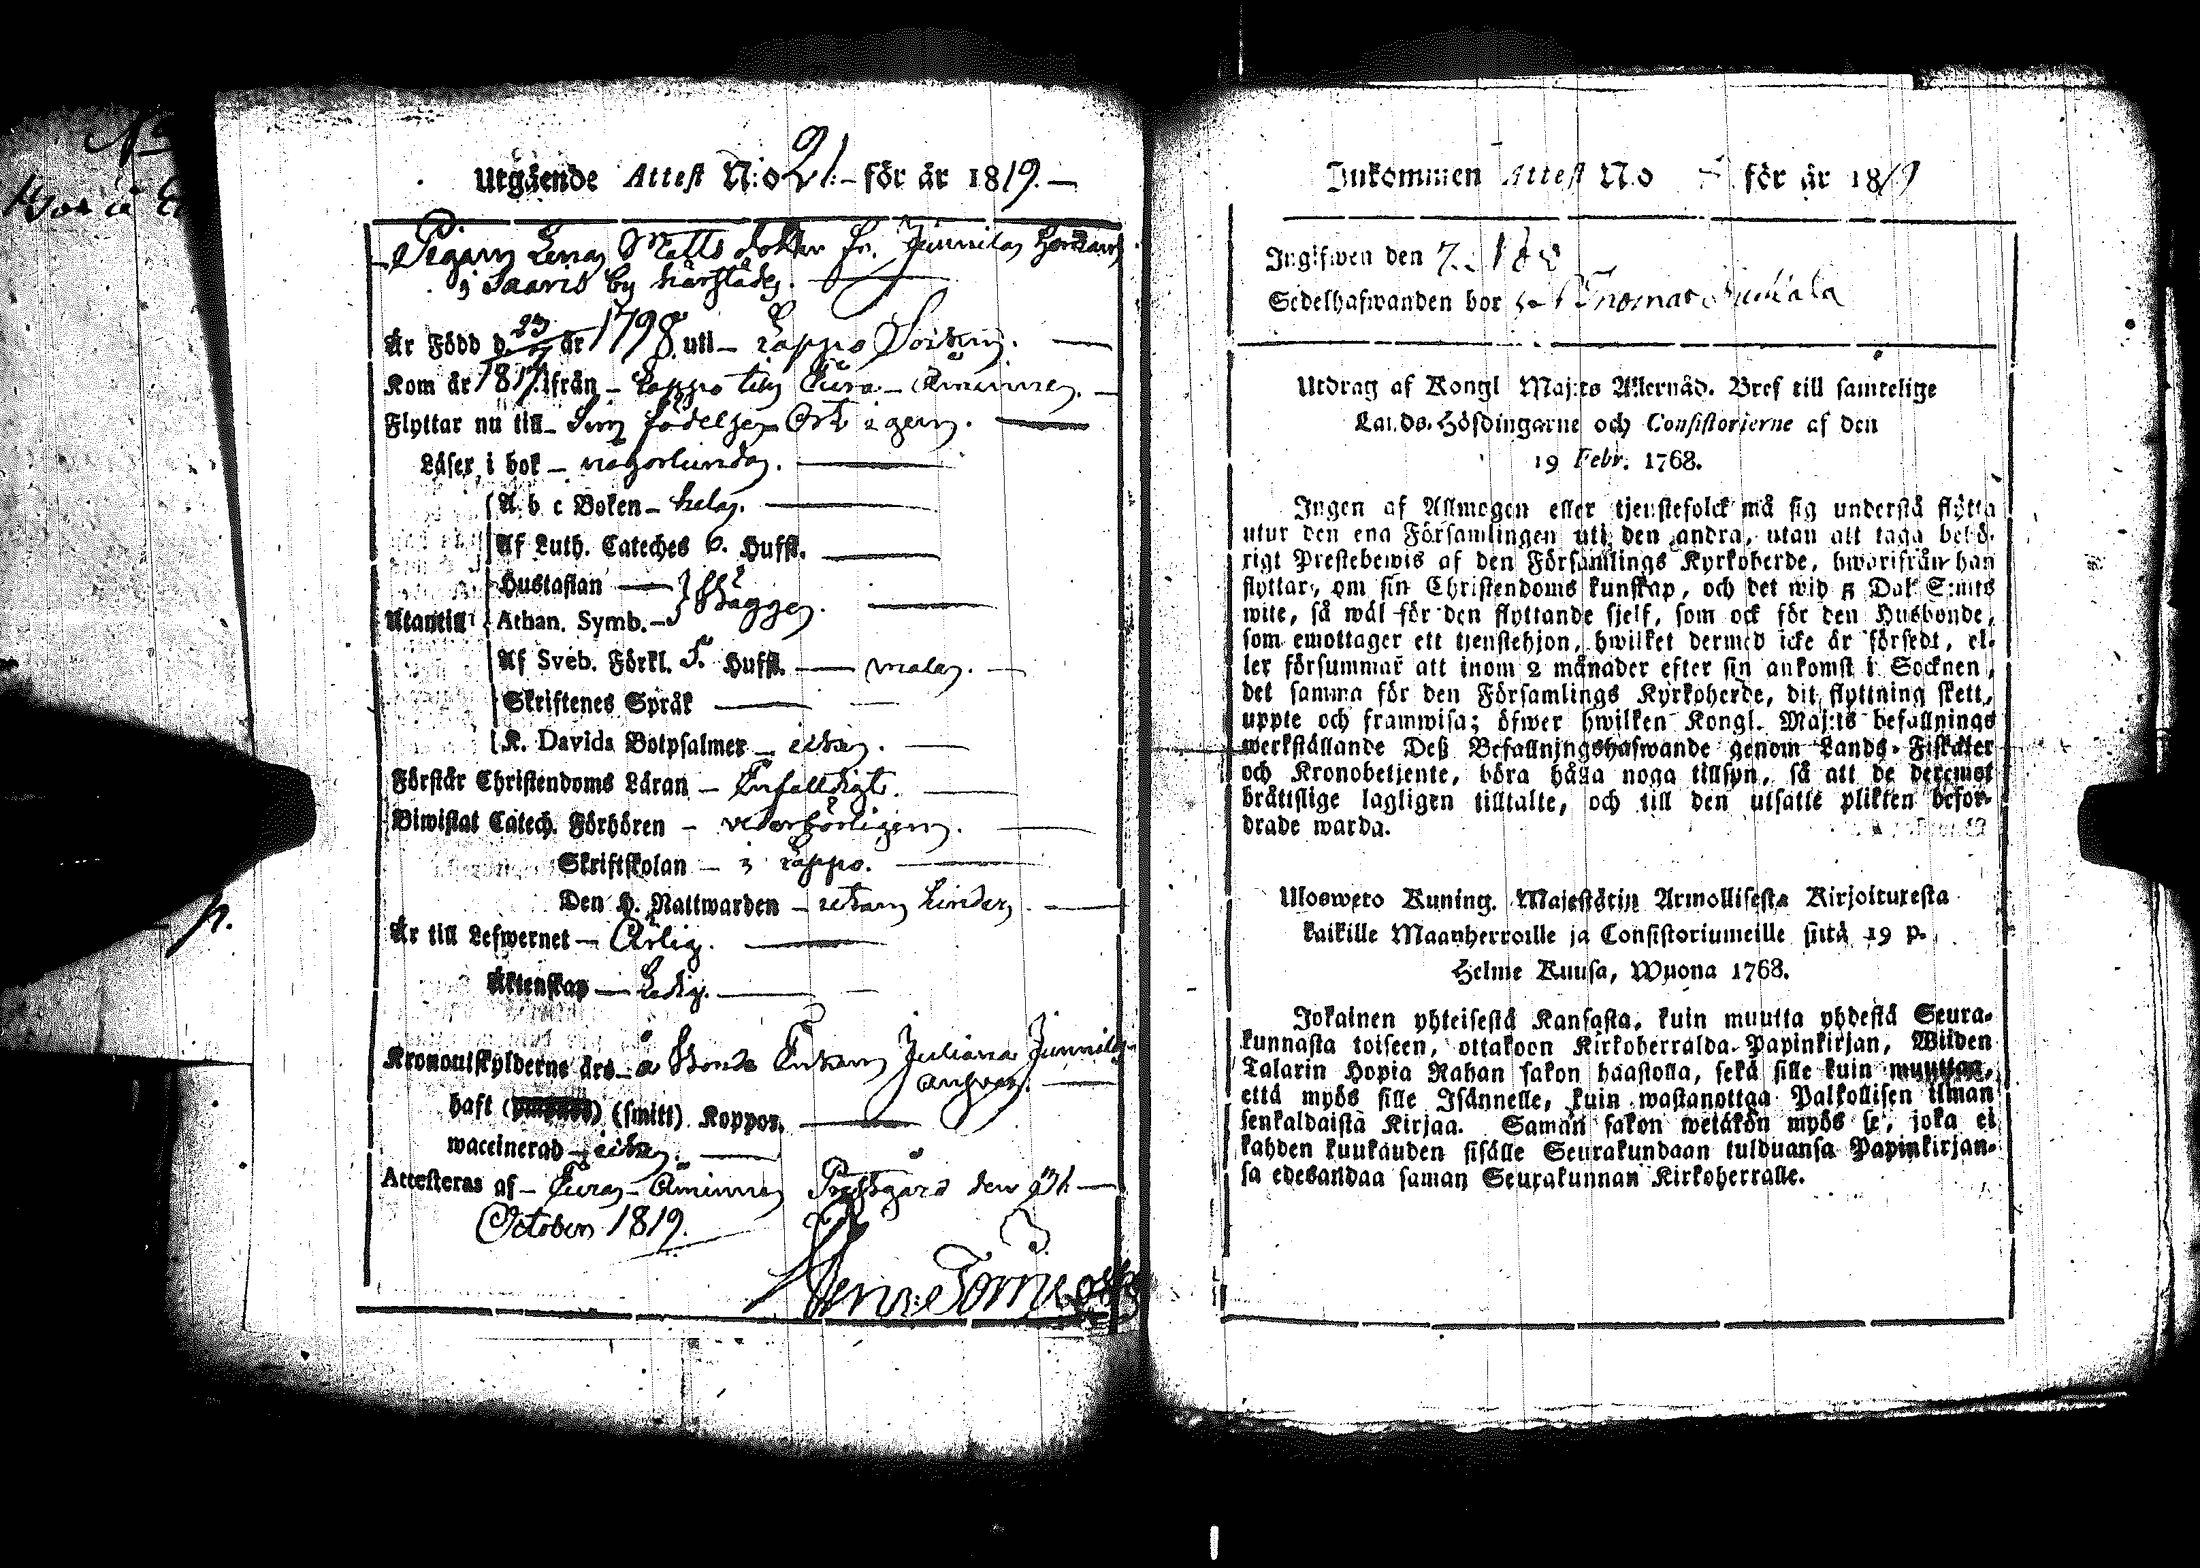 Utgående Attest N:o 21.– för år 1819.–
Pigan Lena Matts Dotter fr. Junnila
i Saaris by härstädes.
Är Född d. 23 år 1798 uti – Lappo Socken.
Kom år 1817 ifrån – Lappo till Eura-Åminne.
Flyttar nu till – Sin födelse Ort igen.
Läser i bok – någorlunda.
A b c Boken – hela.
Af Luth. Cateches 6. Hufst.
Hustaflan –
Utantill Athan. Symb. – Bägge.
Af Sveb. Förkl. 5. Hufst. –
Skriftenes Språk
K. Davids Botpsalmer – icke.
Förstår Christendoms Läran – Enfaldigt.
Biwistat Catech. Förhören – vederbörligen.
Skriftskolan – i Lappo.
Den H. Nattwarden – utan hinder.
Är till Lefwernet – Ärlig.
Äktenskap – Ledig.
Kronoutskylderne års – å Bonde Enkan Juliana Junnila
ansvar.
haft (smitt) Koppor.
waccinerad – icke.
Attesteras af – Eura-Åminne Prestgård den
October 1819.
Inkommen Attest No för år 1819
Ingifwen den 7.
Sedelhafwanden bor Thomas
Utdrag af Kongl Maj:ts Allernåd. Bref till samtelige
Lands-Höfdingarne och Consistorierne af den
19 Febr. 1768.
Ingen af Allmogen eller tjenstefolck må sig understå flytta
utur den ena Församlingen uti den andra, utan att taga behö-
rigt Prestebewis af den Församlings Kyrkoherde, hwarifrån han
flyttar, om sin Christendoms kunskap, och det wid 5 Dal. S:mts
wite, så wäl för den flyttande sjelf, som ock för den Husbonde,
som emottager ett tjenstehjon, hwilket dermed icke är försedt, el-
ler försummar att inom 2 månader efter sin ankomst i Socknen,
det samma för den Församlings Kyrkoherde, dit flyttning skett,
uppte och framwisa; öfwer hwilken Kongl. Maj:ts befallnings
werkställande Deß Befallningshafwande genom Lands-Fiskaler
och Kronobetjente, böra hålla noga tillsyn, så att de deremot
bråttslige lagligen tilltalte, och till den utsatte plikten befor-
drade warda.
Uloswето Kuning. Majestätin Armollisesta Kirjoituxesta
kaikille Maanherroille ja Consistoriumeille siitä 19 p.
Helme Kuusa, Wuona 1768.
Jokainen yhteisestä Kansasta, kuin muutta yhdestä Seura-
kunnasta toiseen, ottakoon Kirkoherralda Papinkirjan, Wiiden
Talarin Hopia Rahan sakon haastolla, sekä sille kuin muuttaa,
että myös sille Isännelle, kuin wastanottaa Palkollisen ilman
senkaldaista Kirjaa. Saman sakon wetäkön myös se, joka ei
kahden kuukauden sisälle Seurakundaan tulduansa Papinkirjan-
sa edesandaa saman Seurakunnan Kirkoherralle.